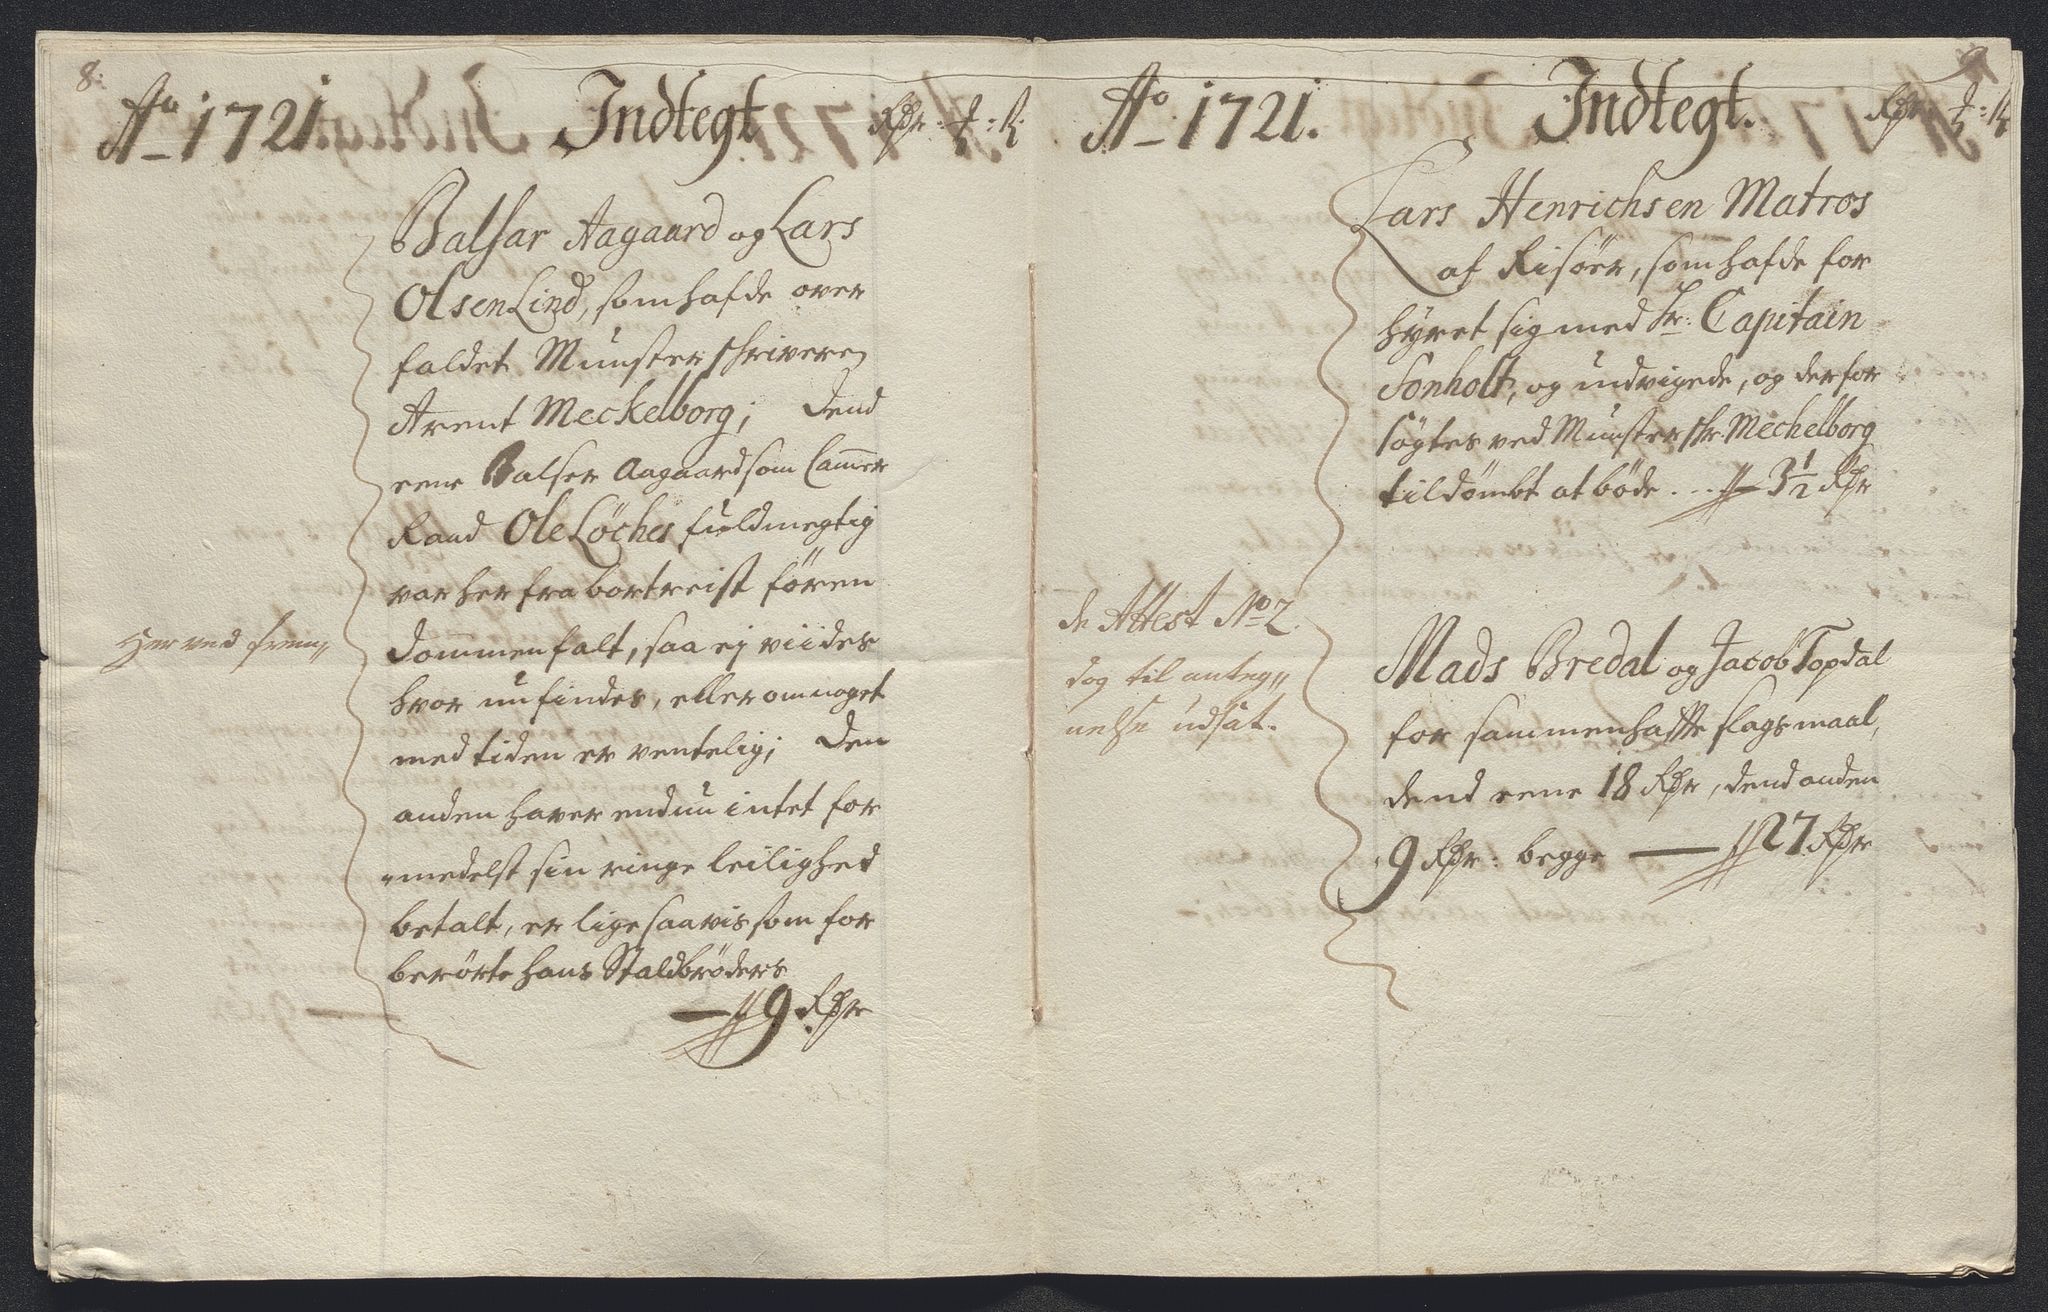 8:
Ao 1721 Indtegt Rdr: ꝑ: ß:
Balsar Aagaard og Lars
Olsen Lind, som hafde over
faldet Munster skriveren
Arent Meckelborg; Dend
eene Balser Aagaard som Cammer
Raad Ole Löches fuldmegtig
var her fra bortreist fören
Dommen falt, saa ej viides
hvor nu findes, eller om noget
med tiden er ventelig; Den
anden haver endnu intet for
„medelst sin ringe leilighed
betalt, er lige saa vis som for
berörte hans Staldbröders
— 9 Rdr
Her ved frem„
Ao 1721. Indtegt. Rdr
Lars Henrichsen Matros
af Risöer, som hafde for
hyret sig med Hr: Capitain
Tonholt, og undvigede, og derfor
sögtes ved Munsterskr: Mechelborg
tildömbt at böde . . . 3½ Rdr
de Attest No 2.
dog til anteg„
nelse udsat.
Mads Bredal og Jacob Topdal
for sammenhafte slagsmaal,
dend eene 18 Rdr, dend anden
9 Rdr: begge — 27 Rdr